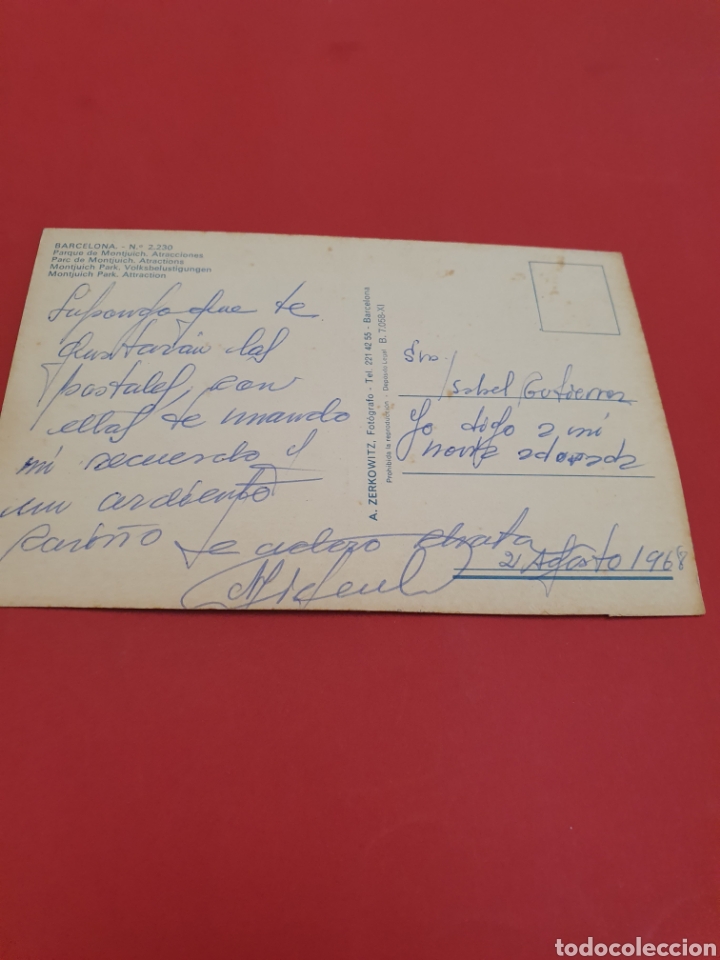 BARCELONA. - N.º 2.230
Parque de Montjuich. Atracciones
Parc de Montjuich. Atractions
Montjuich Park. Volksbelustigungen
Montjuich Park. Attraction
Supongo que te
gustarían las
postales, con
ellas te mando
mi recuerdo y
un ardiente
cariño te adoro
Miguel
A. ZERKOWITZ, Fotógrafo - Tel. 221 42 55 - Barcelona
Prohibida la reproducción - Depósito Legal B. 7.058-XI
Srta.
Isabel Gutierrez
Yo digo a mi
2 Agosto 1968
todocoleccion